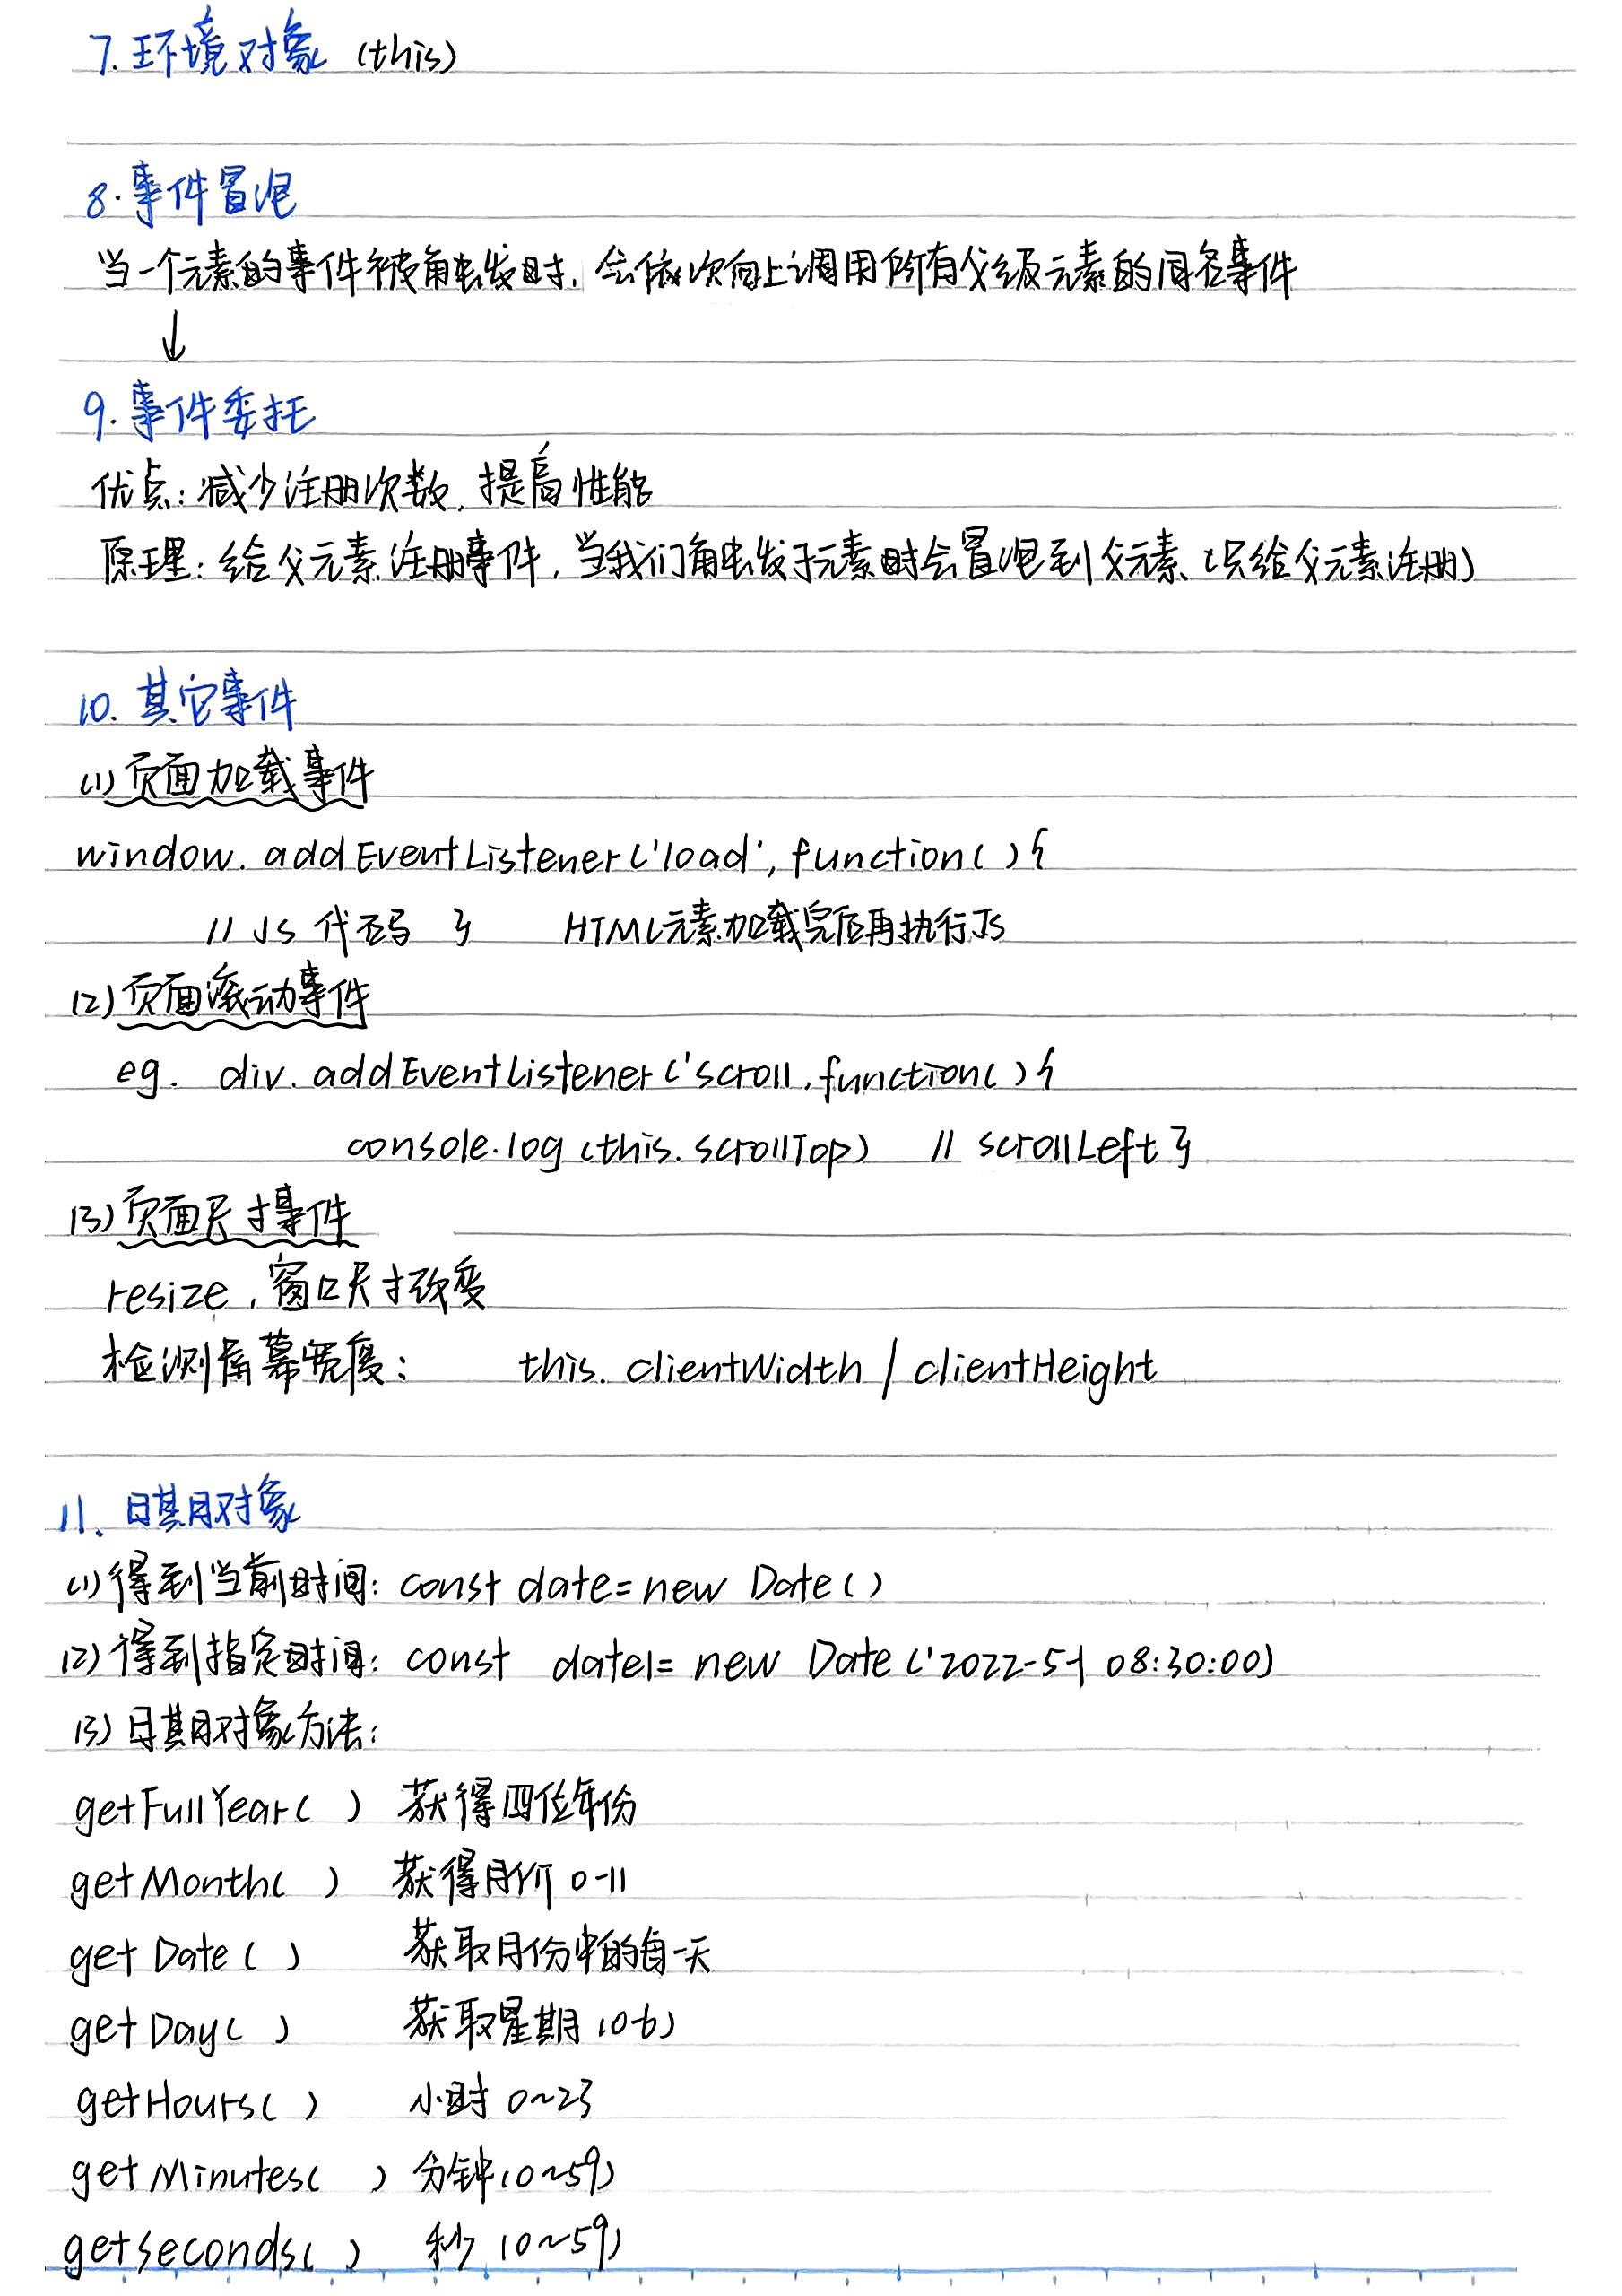 7. 环境对象 (this)
8. 事件冒泡
当一个元素的事件被触发时, 会依次向上调用所有父级元素的同名事件
↓
9. 事件委托
优点: 减少注册次数, 提高性能
原理: 给父元素注册事件, 当我们触发子元素时会冒泡到父元素 (只给父元素注册)
10. 其它事件
(1) 页面加载事件
window.addEventListener('load', function( ) {
// JS 代码 } HTML元素加载完后再执行JS
(2) 页面滚动事件
eg. div.addEventListener('scroll, function( ) {
console.log (this.scrollTop) // scrollLeft }
(3) 页面尺寸事件
resize, 窗口尺寸改变
检测屏幕宽度: this. clientWidth / clientHeight
11、日期对象
(1) 得到当前时间: const date = new Date( )
(2) 得到指定时间: const date1 = new Date ('2022-5-1 08:30:00)
(3) 日期对象方法:
getFullYear( ) 获得四位年份
getMonth( ) 获得月份 0-11
getDate( ) 获取月份中的每一天
getDay( ) 获取星期 (0-6)
getHours( ) 小时 0~23
getMinutes( ) 分钟 (0~59)
getSeconds( ) 秒 (0~59)